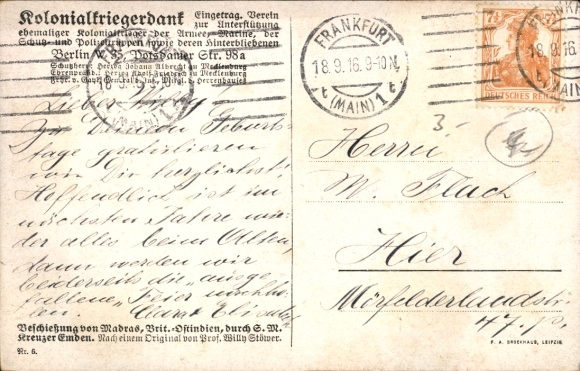 Kolonialkriegerdank Eingetrag. Verein
zur Unterstützung
ehemaliger Kolonialkrieger der Armee, Marine, der
Schutz- und Polizeitruppen sowie deren Hinterbliebenen
Berlin W. 35, Potsdamer Str. 98a
Schutzherr: Herzog Johann Albrecht zu Mecklenburg
Ehrenpräsid.: Herzog Adolf Friedrich zu Mecklenburg
FRANKFURT
18.9.16.9-10N.
(MAIN) 1
7½
DEUTSCHES REICH
Lieber
Zu Deinem Geburts-
tage gratulieren
wir Dir herzlichst!
Hoffendlich ist im
nächsten Jahre wie-
der alles beim Alten,
dann werden wir
beiderseits die „ausge
fallene" Feier nachho-
len.
Herrn
W. Flach
Hier
Mörfelderlandstr.
47.
Beschießung von Madras, Brit.-Ostindien, durch S. M.
Kreuzer Emden. Nach einem Original von Prof. Willy Stöwer.
Nr. 6.
F. A. BROCKHAUS, LEIPZIG.